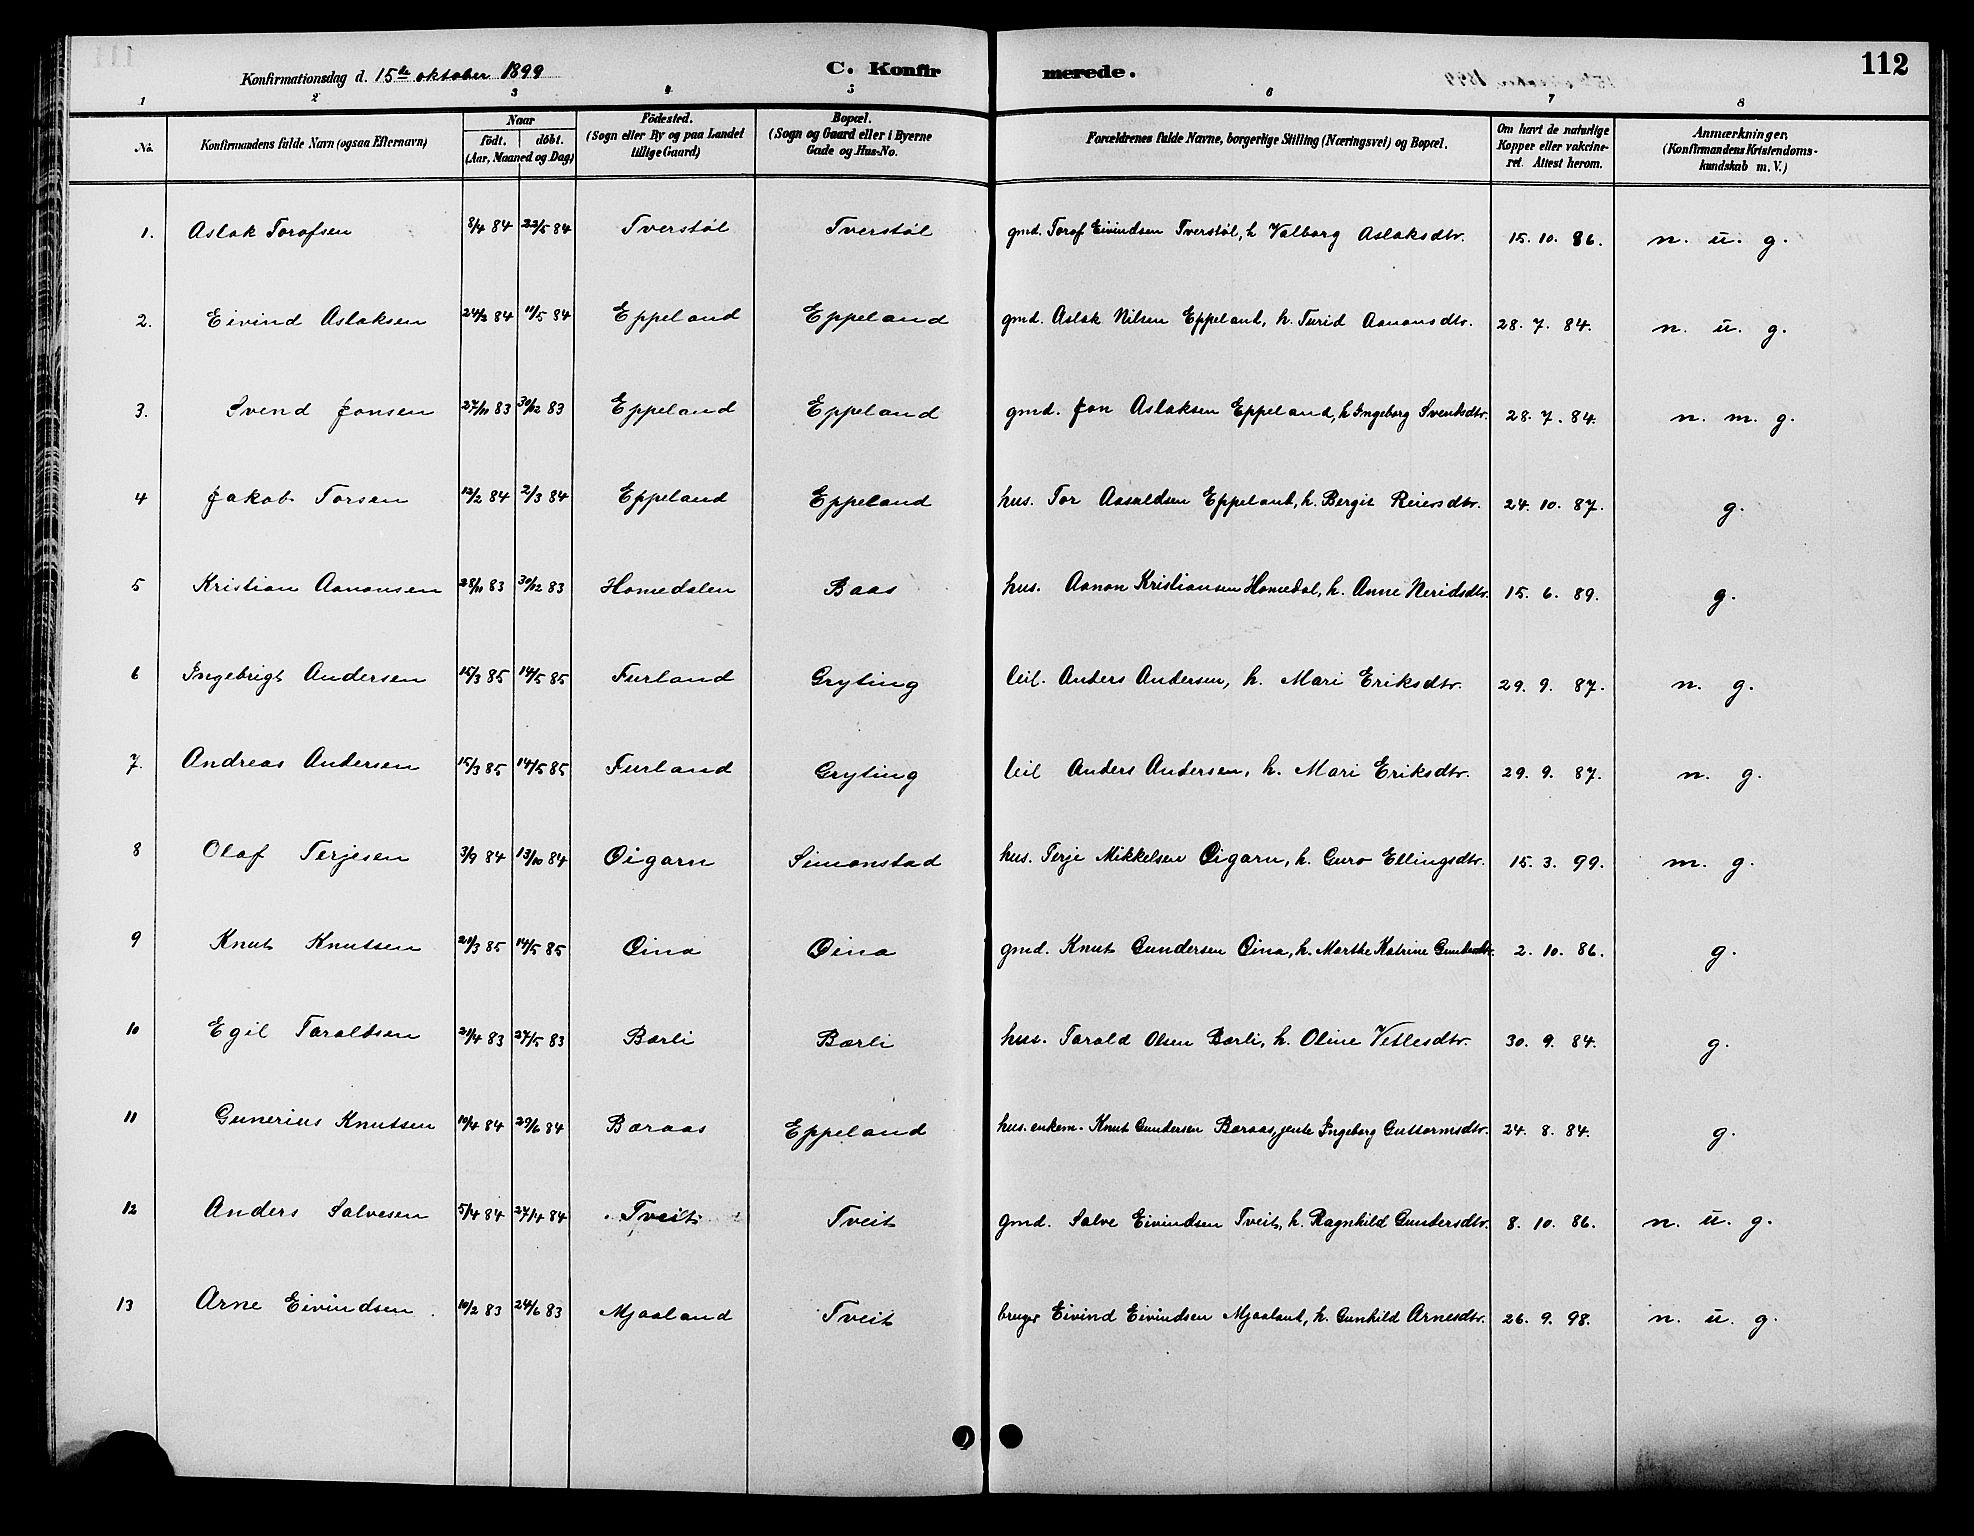 Konfirmationsdag d. 15de oktober 1899
C. Konfir merede. 112
1 2 3 4 5 6 7 8
No. Konfirmandens fulde Navn (ogsaa Efternavn) Naar födt. döbt. (Aar, Maaned og Dag) Födested. (Sogn eller By og paa Landet tillige Gaard) Bopæl. (Sogn og Gaard eller i Byerne Gade og Hus-No. Forældrenes fulde Navne, borgerlige Stilling (Næringsvei) og Bopæl. Om havt de naturlige Kopper eller vakcineret. Attest herom. Anmærkninger, (Konfirmandens Kristendomskundskab m. V.)
1. Aslak Torofsen 8/4 84 22/5 84 Tverstøl Tverstøl gmd. Torof Eivindsen Tverstøl, h Valborg Aslaksdtr. 15. 10. 86. n. u. g.
2. Eivind Aslaksen 24/2 84 11/5 84 Eppeland Eppeland gmd. Aslak Nilsen Eppeland, h. Turid Aanonsdtr. 28. 7. 84. n. u. g.
3. Svend Jonsen 27/11 83 30/12 83 Eppeland Eppeland gmd. Jon Aslaksen Eppeland, h Ingeborg Svendsdtr. 28. 7. 84. n. m. g.
4 Jakob Torsen 12/2 84 2/3 84 Eppeland Eppeland hus. Tor Aasuldsen Eppeland, h. Bergit Reiersdtr. 24. 10. 87. g.
5 Kristian Aanonsen 28/11 83 30/12 83 Homedalen Baas hus. Aanon Kristiansen Homedal, h. Anne Neridsdtr. 15. 6. 89. g.
6 Ingebrigt Andersen 15/3 85 14/5 85 Furland Gryting leil. Anders Andersen, h. Mari Eriksdtr. 29. 9. 87. n. g.
7. Andreas Andersen 15/3 85 14/5 85 Furland Gryting leil Anders Andersen, h. Mari Eriksdtr. 29. 9. 87. n. g.
8 Olaf Terjesen 3/9 84 13/10 84 Øigarn Simonstad hus. Terje Mikkelsen Øigarn, h. Guro Ellingsdtr. 15. 3. 99. m. g.
9 Knut Knutsen 21/3 85 14/5 85 Øina Øina gmd. Knut Gundersen Øina, h. Marthe Katrine Gundersdtr. 2. 10. 86. g.
10 Egil Taraldsen 21/4 83 27/5 83 Barli Barli hus. Tarald Olsen Barli, h. Oline Vetlesdtr. 30. 9. 84. g.
11 Gunerius Knutsen 10/4 84 29/6 84 Baraas Eppeland hus. enkem. Knut Gundersen Baraas, jente Ingeborg Guttormsdtr. 24. 8. 84. g.
12 Anders Salvesen 5/4 84 27/4 84 Tveit Tveit gmd. Salve Eivindsen Tveit, h. Ragnhild Gundersdtr. 8. 10. 86. n. u. g.
13 Arne Eivindsen 10/2 83 24/6 83 Mjaaland Tveit bruger Eivind Eivindsen Mjaaland, h. Gunhild Arnesdtr. 26. 9. 98. n. u. g.